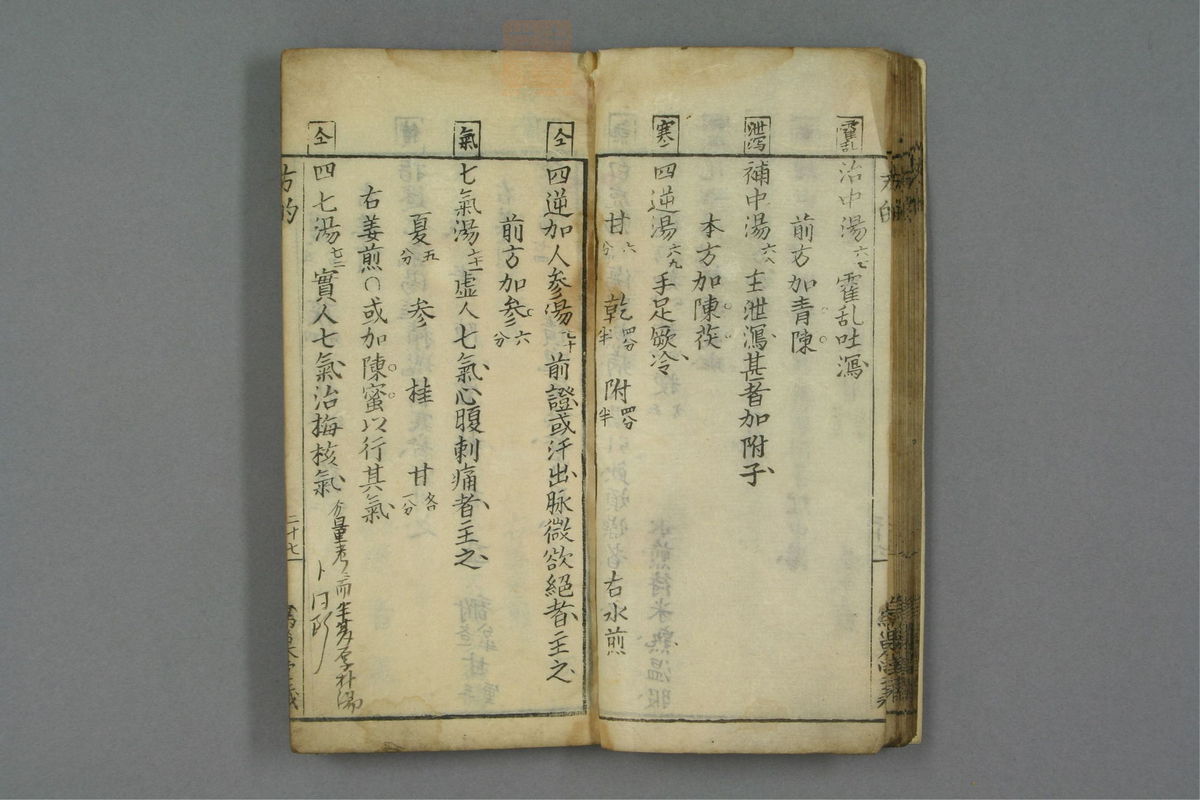 霍乱 治中湯 六七 霍乱吐瀉
前方加青陳
泄瀉 補中湯 六八 主泄瀉甚者加附子
本方加陳茯
寒 四逆湯 六九 手足厥冷
甘 六分 乾 四分半 附 四分半 右水煎
仝 四逆加人参湯 七十 前證或汗出脉微欲絕者主之
前方加参 六分
氣 七氣湯 七一 虚人七氣心腹刺痛者主之
夏 五分 参 桂 甘 各一分
右姜煎○或加陳蜜以行其氣
仝 四七湯 七二 實人七氣治梅核氣
方的
二十七